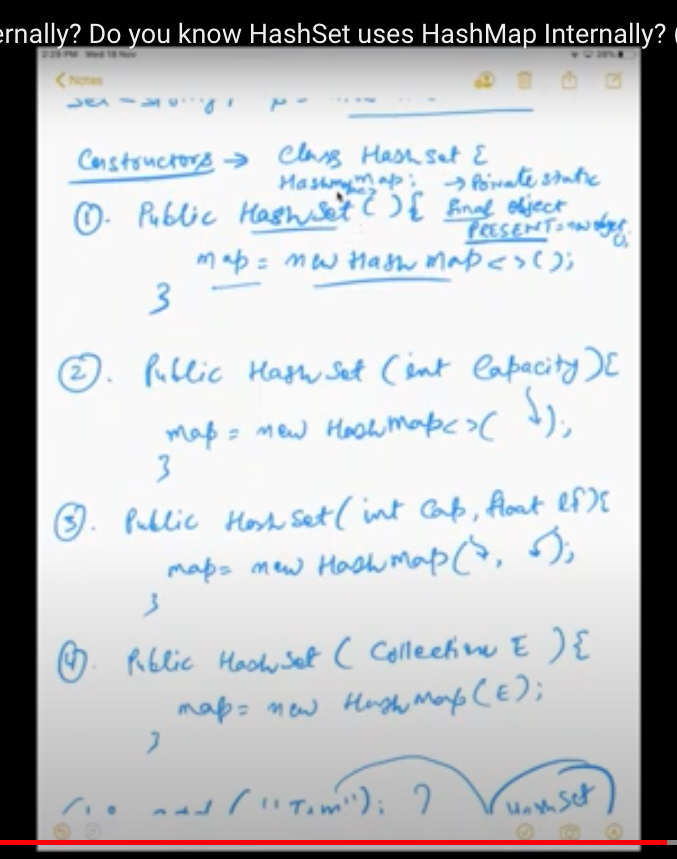 ernally? Do you know HashSet uses HashMap Internally? (
2:29 PM Wed 18 Nov
Notes
Constructors → Class Hashset {
Hashmap map; → Private static
① . Public HashSet ( ) { final object
PRESENT = new object();
map = new HashMap < > ( );
}
② . Public HashSet (int Capacity) {
map = new HashMap < > ( );
}
③ . Public HashSet ( int Cap, float lf) {
map = new HashMap ( , );
}
④ . Public HashSet ( Collection E ) {
map = new HashMap (E);
}
("Tom");